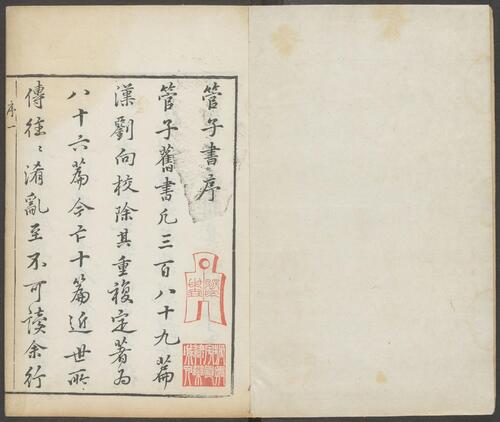 管子書序
管子舊書凡三百八十九篇
漢劉向校除其重複定著為
八十六篇今亡十篇近世所
傳往〻淆亂至不可讀余行
序一